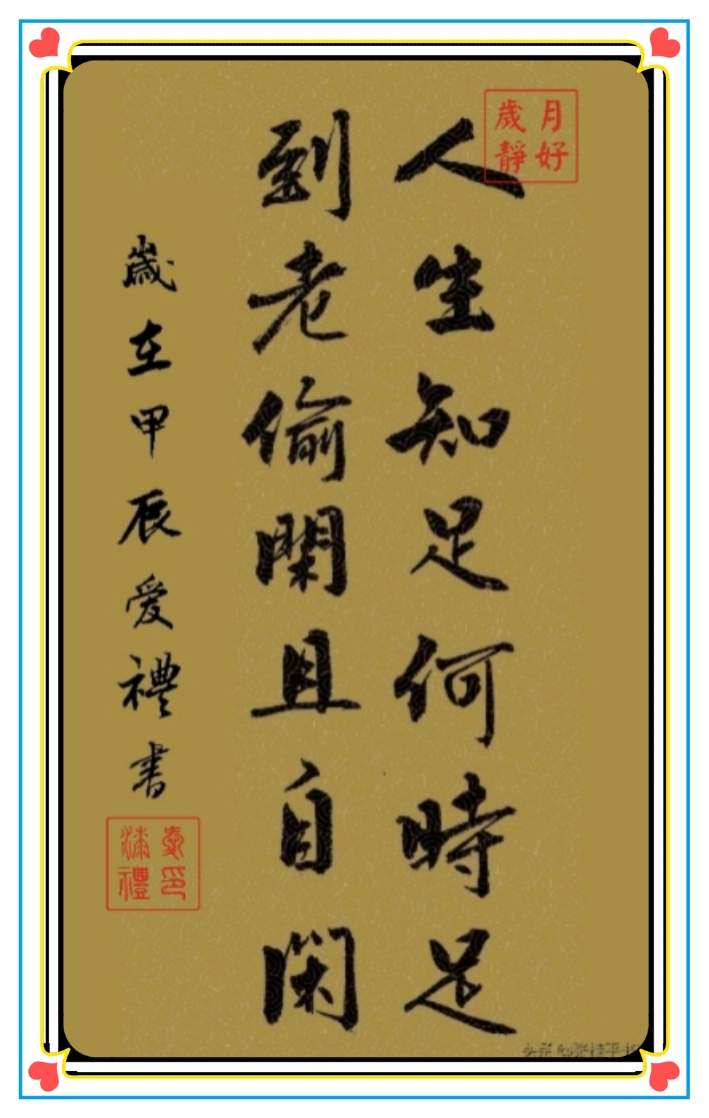 歲月靜好
人生知足何時足
到老偷閑且自閑
歲在甲辰爱禮書
印禮
头条